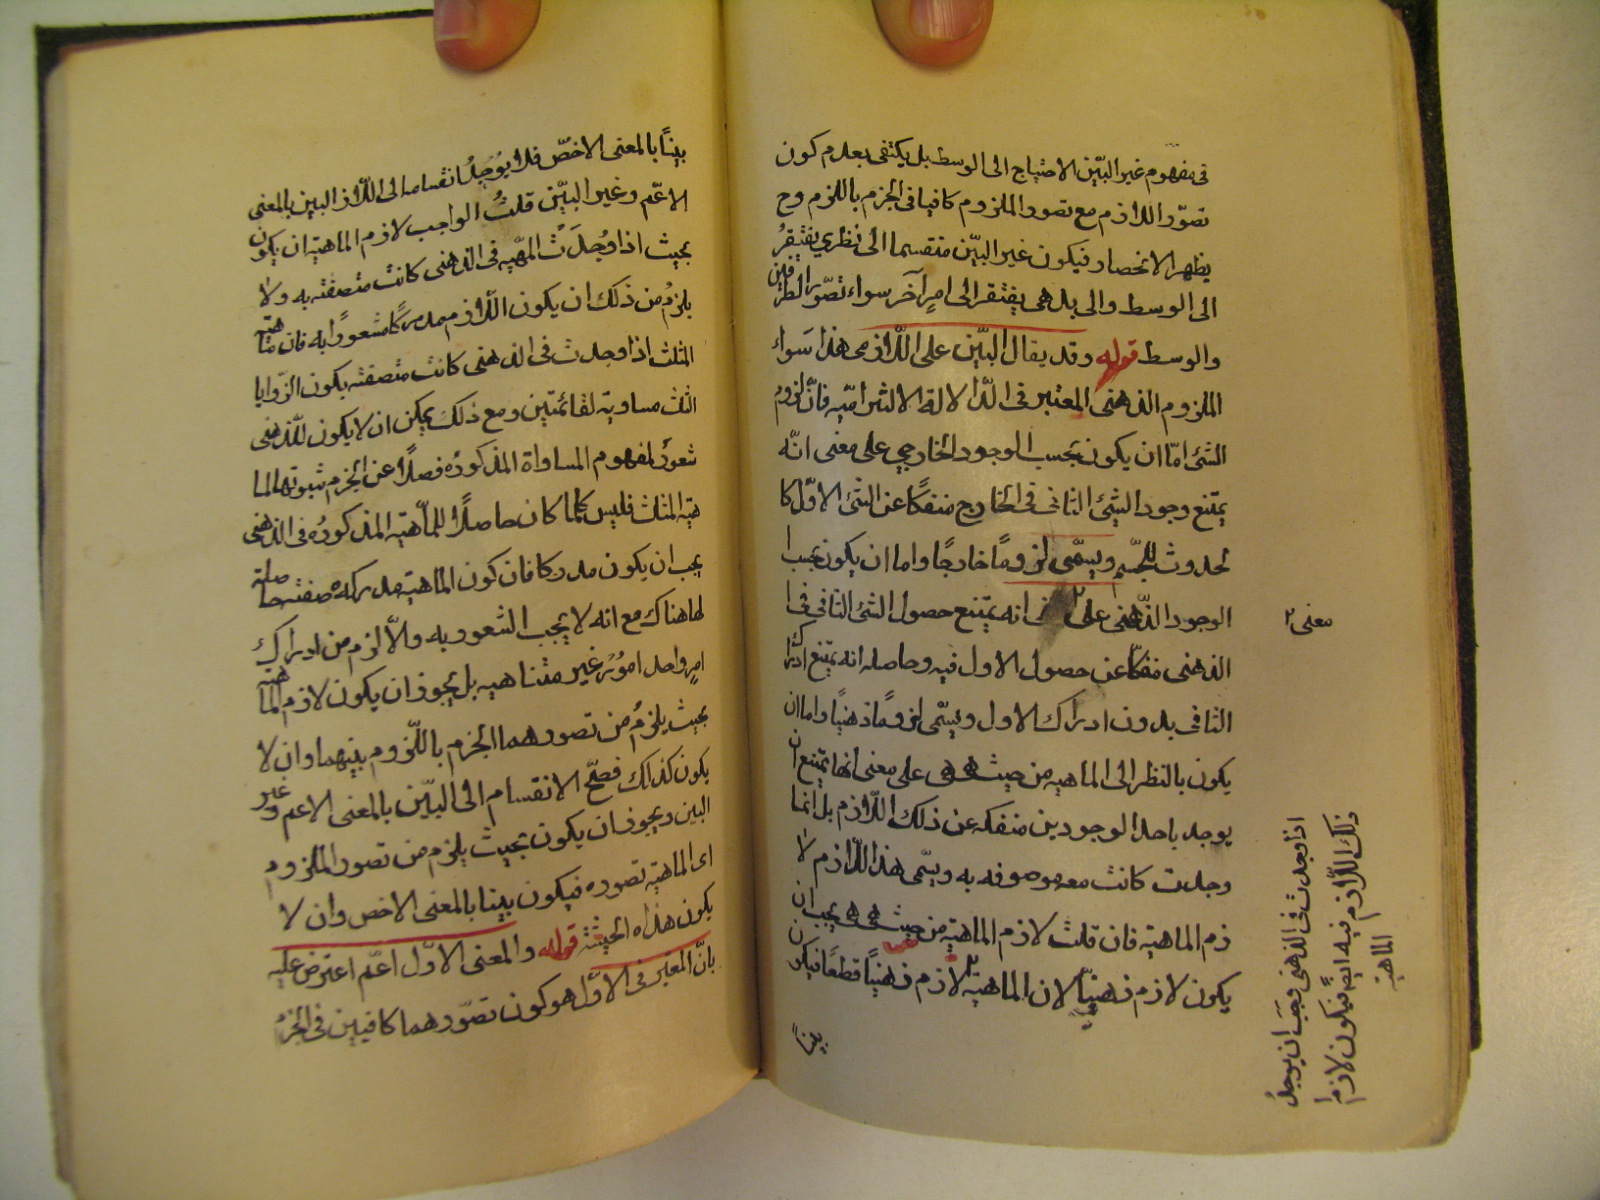 فى مفهوم غير البيّن الاحتياج الى الوسط بل يكتفى بعدم كون
تصوّر اللازم مع تصور الملزوم كافيا فى الجزم باللزوم وح
يظهر الانحصار فيكون غير البيّن منقسما الى نظري يفتقرُ
الى الوسط والى بدهى يفتقر الى امرٍ آخر سواء تصّور الطرفين
والوسط قوله وقد يقال البيّن على اللّازم هذا سَواء
الملزوم الذهنى المعتبر فى الدّلالة الالتزاميّه فانّ لزوم
الشئ امّا ان يكون بحسب الوجود الخارجي على معنى انّه
يمتنع وجود الشئ الثانى فى الخارج منفكًا عن الشئ الاوّل كا
لحدوث للجسّم ويسمّى لزومًا خارجًا واما ان يكون بحسب
الوجود الذّهنى على انه يمتنع حصول الشئ الثانى فى ا
الذهنى منفكّا عن حصول الاول فيه وحاصله انه يمتنع ادراك
الثانى بدون ادراك الاول ويسّمى لزومًا ذهنيًا واما ان
يكون بالنظر الى الماهيه من حيث هى هى على معنى انها يمتنع ان
يوجد باحد الوجودين منفكه عن ذلك اللّازم بل انما
وجدت كانت معه موصوفه به ويسّمى هذا اللّازم لا
زم الماهيّه فان قلت لازم الماهيّه من حيث هى هى يجب ان
يكون لازم ذهنيّا لان الماهيّه لازم ذهنيًا قطعًا فيكون
بينًا
معنى ٢
اذا وجدت فى الذهنى وجَبَ ان يوجدُ
ذلك اللّازم فيه ايضً فيكون لازم
الماهيّه
بينًا بالمعنى الاخصّ فلا يوُجَدُ انقسامه الى اللّازم البين بالمعنى
الاعّم وغير البيّن قلتُ الواجب لازم الماهيّه ان يكون
بحيث اذا وُجدَتْ المهّيه فى الذهنى كانت متصفته به ولا
يلزمُ من ذلك ان يكون اللّازم مدركًا مشعورًا به فان ماهيّة
المثلث اذا وجدت فى الذهنى كانت متصفته بكون الزّوايا
الثلث مساوية لقائمتين ومع ذلك يمكن ان لا يكون للذهنى
شعورٌ لمفهوم المساواة المذكورُه فصلًا عن الجزم ثبوتها لما
هيّه المثلث فليس كلما كان حاصلًا للماّهيّه المذكورُه فى الذهنى
يجب ان يكون مدركا فان كون الماهيّه مدركه صفته حاصلة
لها هناك مع انه لا يجب الشعور به والّا لزم من ادراك
امرٍ واحد امورٌ غير متناهيه بل يجوز ان يكون لازم الماهيّة
بحيث يلزمُ من تصورهما الجزم باللّزوم بينهما وان لا
يكون كذلك فصّح الانقسام الى البيّن بالمعنى الاعم وغير
البين ويجوز ان يكون بحيث يلزم من تصور الملزوم
اى الماهيّه تصوره فيكون بينا بالمعنى الاخص وان لا
يكون هذاه الحيثيّه قوله والمعنى الاوّل اعّم اعترض عليه
بانّ المعتبر فى الاوّل هو كون تصوّرهما كافيين فى الجزم